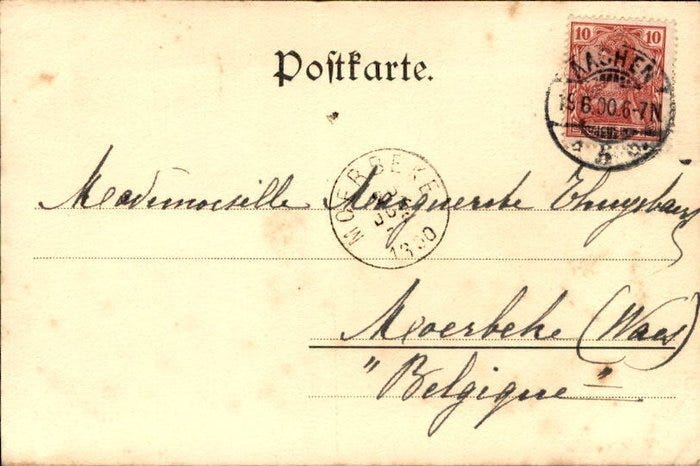 10 10
Postkarte.
AACHEN
19.6.00.6-7N
MOERBEKE
Mademoiselle Marguerite
Moerbeke (Waes)
"Belgique"